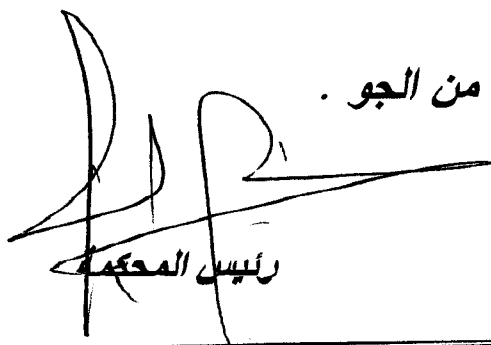 من الجو .
رئيس المحكمة